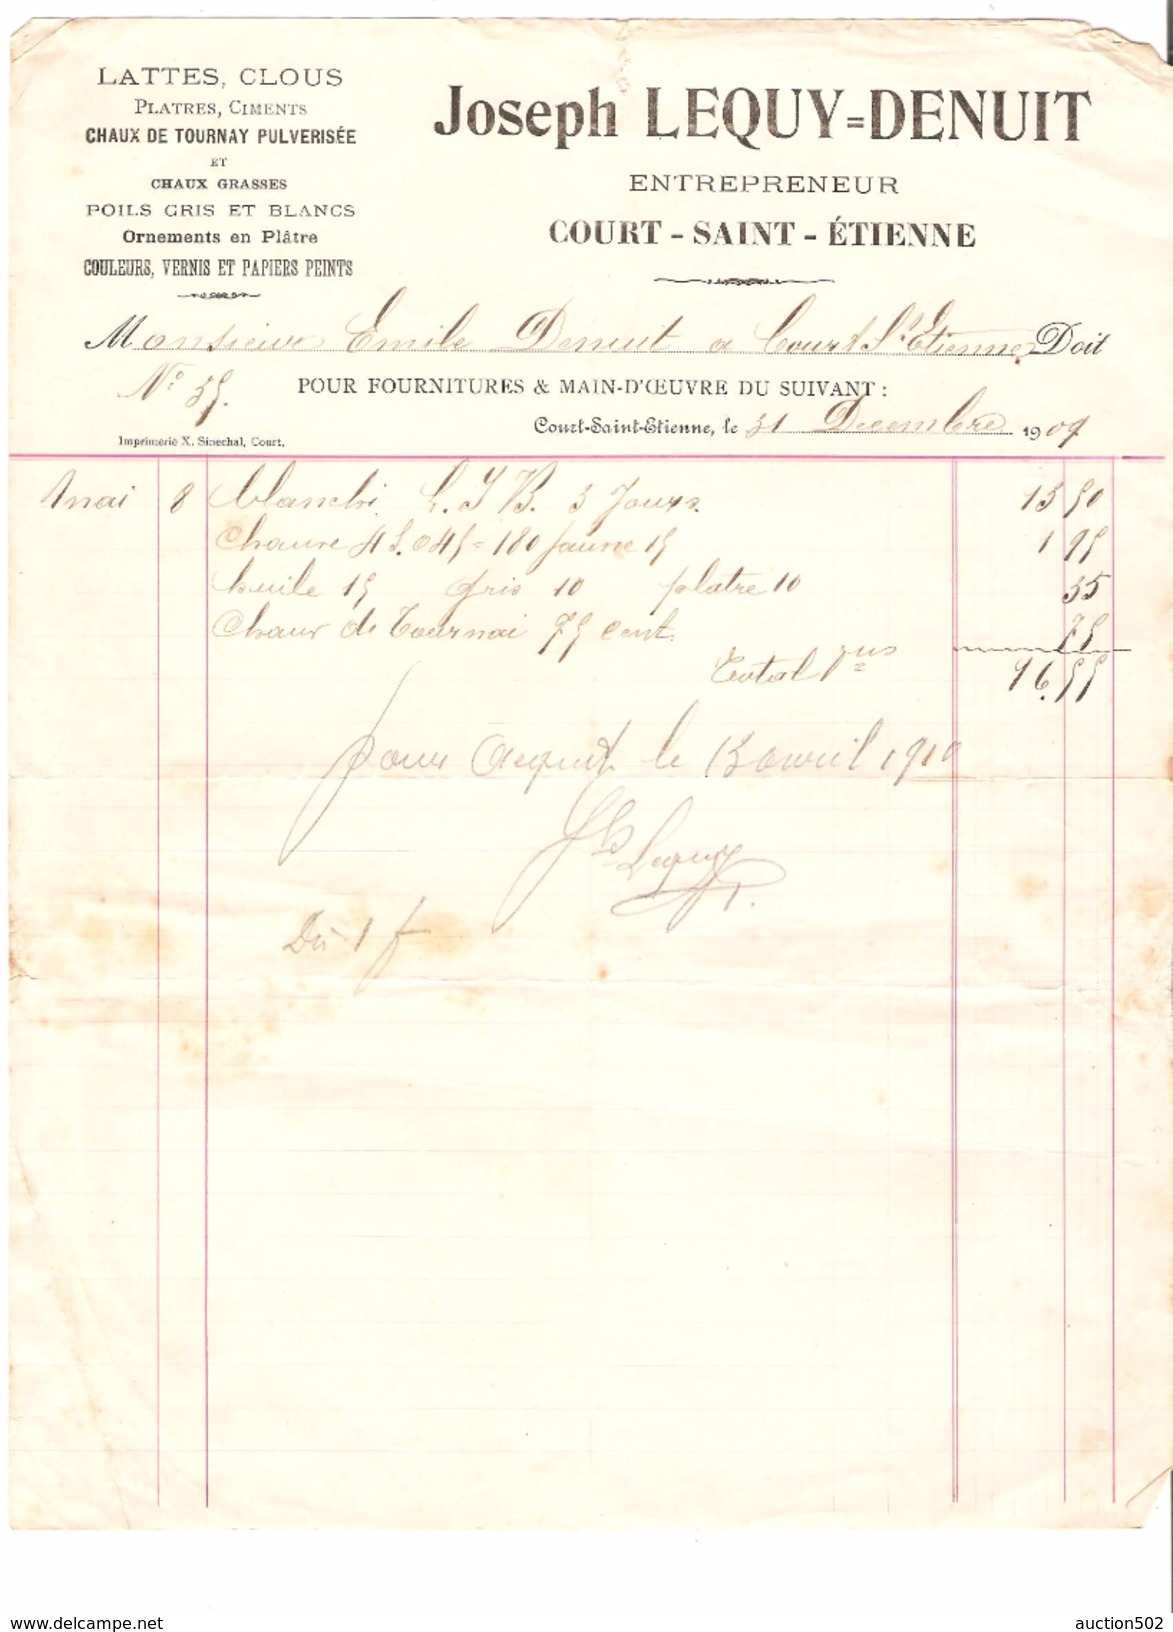 LATTES, CLOUS
PLATRES, CIMENTS
CHAUX DE TOURNAY PULVERISÉE
ET
CHAUX GRASSES
POILS GRIS ET BLANCS
Ornements en Plâtre
COULEURS, VERNIS ET PAPIERS PEINTS
Joseph LEQUY=DENUIT
ENTREPRENEUR
COURT - SAINT - ÉTIENNE
Monsieur Emile Denuit a Court St Etienne Doit
N° 35. POUR FOURNITURES & MAIN-D'ŒUVRE DU SUIVANT :
Court-Saint-Etienne, le 31 Decembre 1909
Imprimerie X. Sinechal, Court.
Mai 8 blanchi 3 Jours 13 50
045 = 180 jaune 15 1 95
huile 15 gris 10 platre 10 35
Chaux de Tournai 75 cent. 75
Total 16.55
pour Acquit le 13 avril 1910
Jh Lequy
Du 1 f
www.delcampe.net
auction502